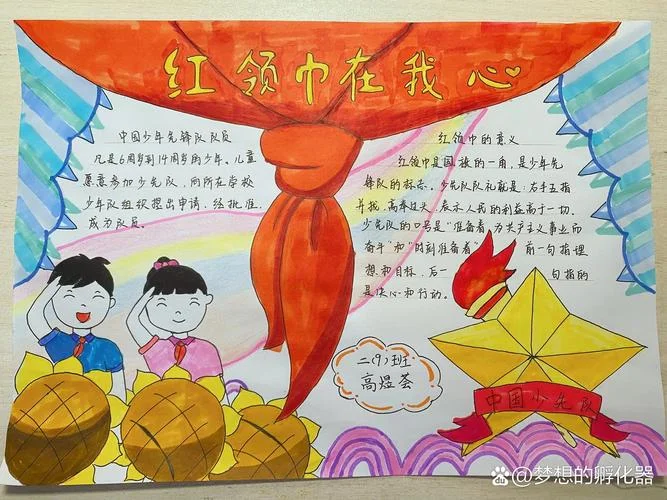 红领巾在我心
中国少年先锋队队员
凡是6周岁到14周岁的少年、儿童
愿意参加少先队，向所在学校
少年队组织提出申请，经批准，
成为队员。
红领巾的意义
红领巾是国旗的一角，是少年先
锋队的标志。少先队队礼就是：右手五指
并拢，高举过头，表示人民的利益高于一切。
少先队的口号是“准备着，为共产主义事业而
奋斗”和“时刻准备着” 前一句指理
想和目标，后一 句指的
是决心和行动。
二(9)班
高煜荟
中国少先队
@梦想的孵化器